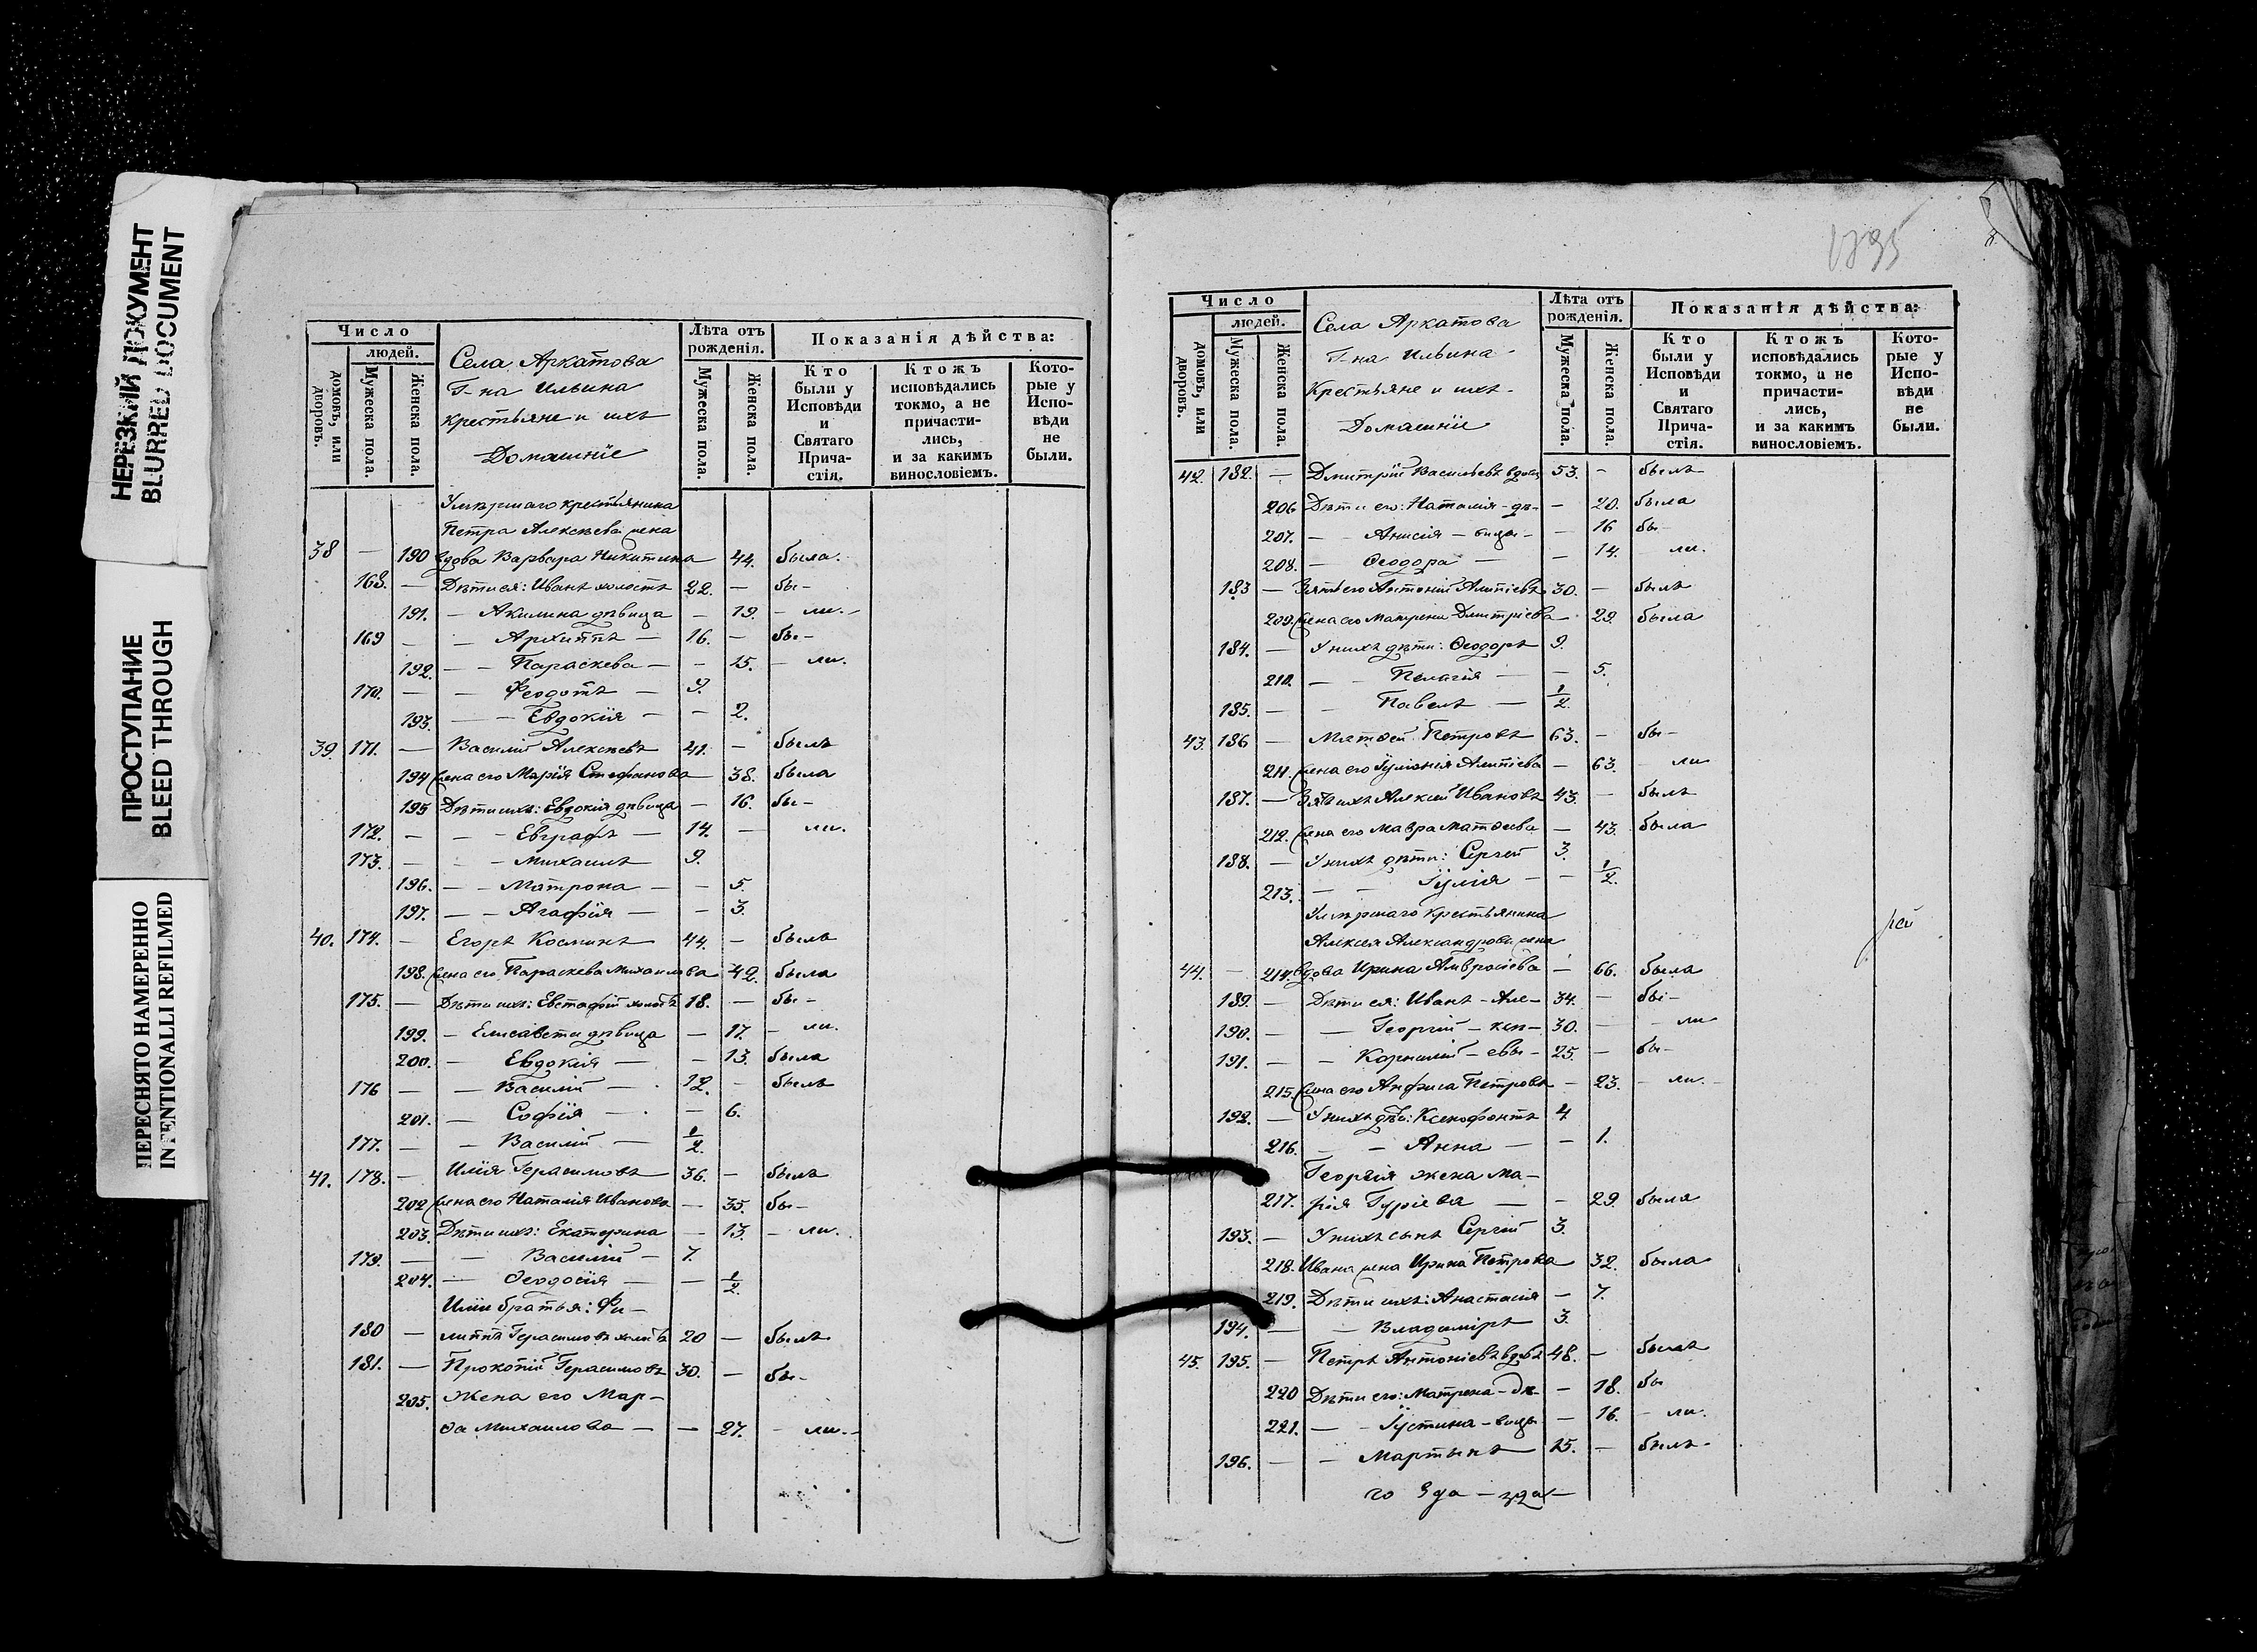 НЕРЕЗКИЙ ДОКУМЕНТ
BLURRED DOCUMENT
ПРОСТУПАНИЕ
BLEED THROUGH
ПЕРЕСНЯТО НАМЕРЕННО
INTENTIONALLI REFILMED
Число
людей.
домовъ, или дворовъ.
Мужеска пола.
Женска пола.
Села Аркатова
Г-на Ильина
крестьяне и ихъ
Домашніе
Лѣта отъ рожденія.
Мужеска пола.
Женска пола.
Показанія дѣйства:
Кто были у Исповѣди и Святаго Прича-стія.
Ктожъ исповѣдались токмо, а не причасти-лись, и за какимъ винословіемъ.
Кото-рые у Испо-вѣди не были.
Умершаго крестьянина
Петра Алексѣева жена
38 — 190 вдова Варвара Никитина 44. была.
168. — Дѣти ея: Иванъ холостъ 22. — бы-
191. — Акилина дѣвица — 19. — ли.-
169 — — Архиппъ — 16. — бы-
192. — — Параскева — — 15. — ли.
170. — — Феодотъ — 9.
193. — — Евдокія — — 2.
39. 171. — Василій Алексѣевъ 41. — былъ
194 жена его Марія Стефанова 38. была
195 Дѣти ихъ: Евдокія дѣвица — 16. бы-
172. — — — Евграфъ — 14. — ли.
173. — — — Михаилъ 9.
196. — — Матрона — — 5.
197. — — Агафія — — 3.
40. 174. — Егоръ Косминъ 44. — былъ
198. жена его Параскева Михаилова 42. была
175. — Дѣти ихъ: Евстафій холостъ 18. — бы-
199. — Елисавета дѣвица — 17. — ли.
200. — Евдокія — — 13. была
176 — — Василій — 12. — былъ
201. — Софія — — 6.
177. — — Василій — 1/2.
41. 178. — Илія Герасимовъ 36. — былъ
202 жена его Наталія Иванова — 35. бы-
203. Дѣти ихъ: Екатерина — 13. — ли.
179. — — Василій — 7.
204. — Ѳеодосія — — 1/2.
Иліи братья: Фи-
180 — липпъ Герасимовъ холостъ 20 — былъ
181. — Прокопій Герасимовъ 30. — бы-
205. Жена его Мар-
ѳа Михаилова — — 27. — ли.-
1795
Число
людей.
домовъ, или дворовъ.
Мужеска пола.
Женска пола.
Села Аркатова
Г-на Ильина
Крестьяне и ихъ
Домашніе
Лѣта отъ рожденія.
Мужеска пола.
Женска пола.
Показанія дѣйства:
Кто были у Исповѣди и Святаго Прича-стія.
Ктожъ исповѣдались токмо, и не причасти-лись, и за какимъ винословіемъ.
Кото-рые у Испо-вѣди не были.
42. 182. — Дмитрій Васильевъ вдовъ 53. — былъ
206 Дѣти его: Наталія - дѣ- — 20. была
207. — Анисія - вицы - — 16 бы-
208. — Ѳеодора — — 14. — ли.
183 — Зять его Антоній Алипіевъ 30. — былъ
209. жена его Матрена Дмитріева — 29. была
184. — У нихъ дѣти: Ѳеодоръ 9.
210. — — Пелагія — — 5.
185. — — Павелъ — 1/2.
43. 186 — Матѳей Петровъ 63. — бы-
211. жена его Іуліанія Алипіева — 63. — ли
187. — Зять ихъ Алексій Ивановъ 43. — былъ
212. жена его Мавра Матѳеева — 43. была
188. — У нихъ дѣти: Сергій 3.
213. — — Іулія — — 1/2.
Умершаго крестьянина
Алексѣя Александрова жена
44. — 214. вдова Ирина Амвросіева — 66. была
189. — Дѣти ея: Иванъ - Але- 34. — бы-
190. — — Георгій - ксѣ- 30. — — ли
191. — — Корнилій - евы - 25. — бы-
215. жена его Анфиса Петрова — 23. — ли.
192. — У нихъ дѣти: Ксенофонтъ 4
216. — — Анна — — 1.
Георгія жена Ма-
217. рія Гуріева — — 29. была
193. — У нихъ сынъ Сергій 3.
218. Ивана жена Ирина Петрова 32. была
219. Дѣти ихъ: Анастасія — 7.
194. — — Владиміръ 3.
45. 195. — Петръ Антоніевъ вдовъ 48. — былъ
220 Дѣти его: Матрена - дѣ- — 18. бы
221. — — Іустина - вицы — 16. — ли.
196. — — Мартынъ 15. — былъ-